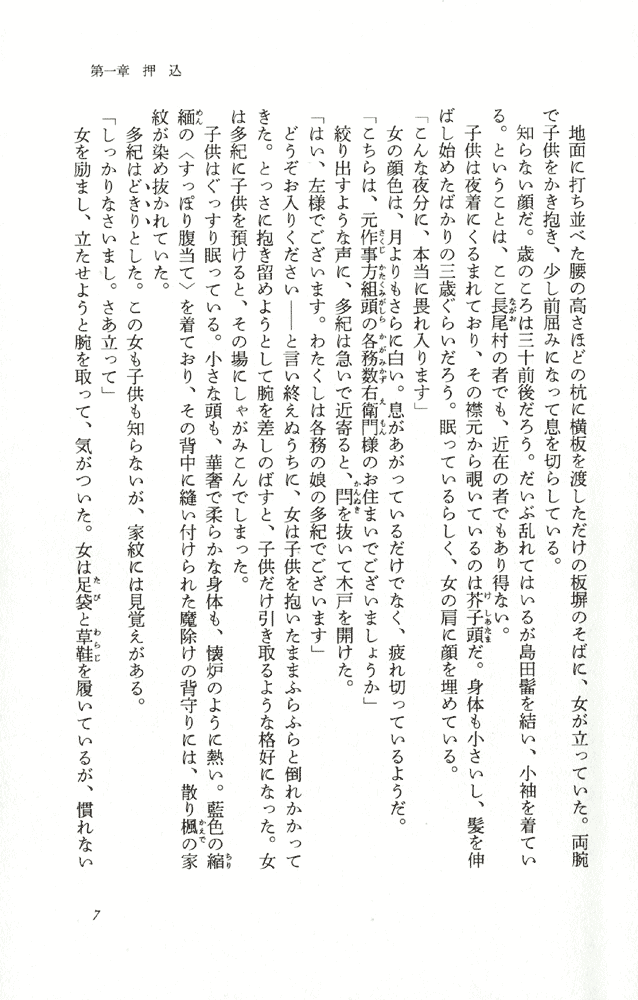 第一章 押込
地面に打ち並べた腰の高さほどの杭に横板を渡しただけの板塀のそばに、女が立っていた。両腕
で子供をかき抱き、少し前屈みになって息を切らしている。
知らない顔だ。歳のころは三十前後だろう。だいぶ乱れてはいるが島田髷を結い、小袖を着てい
る。ということは、ここ長尾村の者でも、近在の者でもあり得ない。
子供は夜着にくるまれており、その襟元から覗いているのは芥子頭だ。身体も小さいし、髪を伸
ばし始めたばかりの三歳ぐらいだろう。眠っているらしく、女の肩に顔を埋めている。
「こんな夜分に、本当に畏れ入ります」
女の顔色は、月よりもさらに白い。息があがっているだけでなく、疲れ切っているようだ。
「こちらは、元作事方組頭の各務数右衛門様のお住まいでございましょうか」
絞り出すような声に、多紀は急いで近寄ると、閂を抜いて木戸を開けた。
「はい、左様でございます。わたくしは各務の娘の多紀でございます」
どうぞお入りください――と言い終えぬうちに、女は子供を抱いたままふらふらと倒れかかって
きた。とっさに抱き留めようとして腕を差しのばすと、子供だけ引き取るような格好になった。女
は多紀に子供を預けると、その場にしゃがみこんでしまった。
子供はぐっすり眠っている。小さな頭も、華奢で柔らかな身体も、懐炉のように熱い。藍色の縮
緬の〈すっぽり腹当て〉を着ており、その背中に縫い付けられた魔除けの背守りには、散り楓の家
紋が染め抜かれていた。
多紀はどきりとした。この女も子供も知らないが、家紋には見覚えがある。
「しっかりなさいまし。さあ立って」
女を励まし、立たせようと腕を取って、気がついた。女は足袋と草鞋を履いているが、慣れない
7